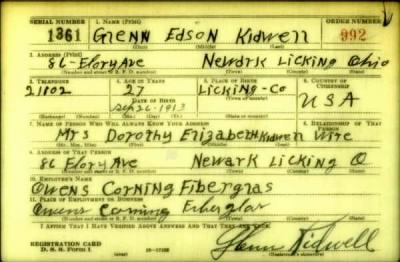 SERIAL NUMBER 1. NAME (Print) ORDER NUMBER
1361 Glenn Edson Kidwell 992
(First) (Middle) (Last)
2. ADDRESS (Print)
86-Flory Ave Newark Licking Ohio
(Number and street or R. F. D. number) (Town) (County) (State)
3. TELEPHONE 4. AGE IN YEARS 5. PLACE OF BIRTH 6. COUNTRY OF CITIZENSHIP
21802 27 Licking-Co USA
DATE OF BIRTH
Sep 26-1913
(Exchange) (Number) (Mo.) (Day) (Yr.) (State or country)
7. NAME OF PERSON WHO WILL ALWAYS KNOW YOUR ADDRESS 8. RELATIONSHIP OF THAT PERSON
Mrs Dorothy Elizabeth Kidwell Wife
(Mr., Mrs., Miss) (First) (Middle) (Last)
9. ADDRESS OF THAT PERSON
86 Flory Ave Newark Licking O
(Number and street or R. F. D. number) (Town) (County) (State)
10. EMPLOYER'S NAME
Owens Corning Fiberglas
11. PLACE OF EMPLOYMENT OR BUSINESS
Owens Corning Fiberglas
(Number and street or R. F. D. number) (Town) (County) (State)
I AFFIRM THAT I HAVE VERIFIED ABOVE ANSWERS AND THAT THEY ARE TRUE.
REGISTRATION CARD
D. S. S. Form 1
Glenn Kidwell